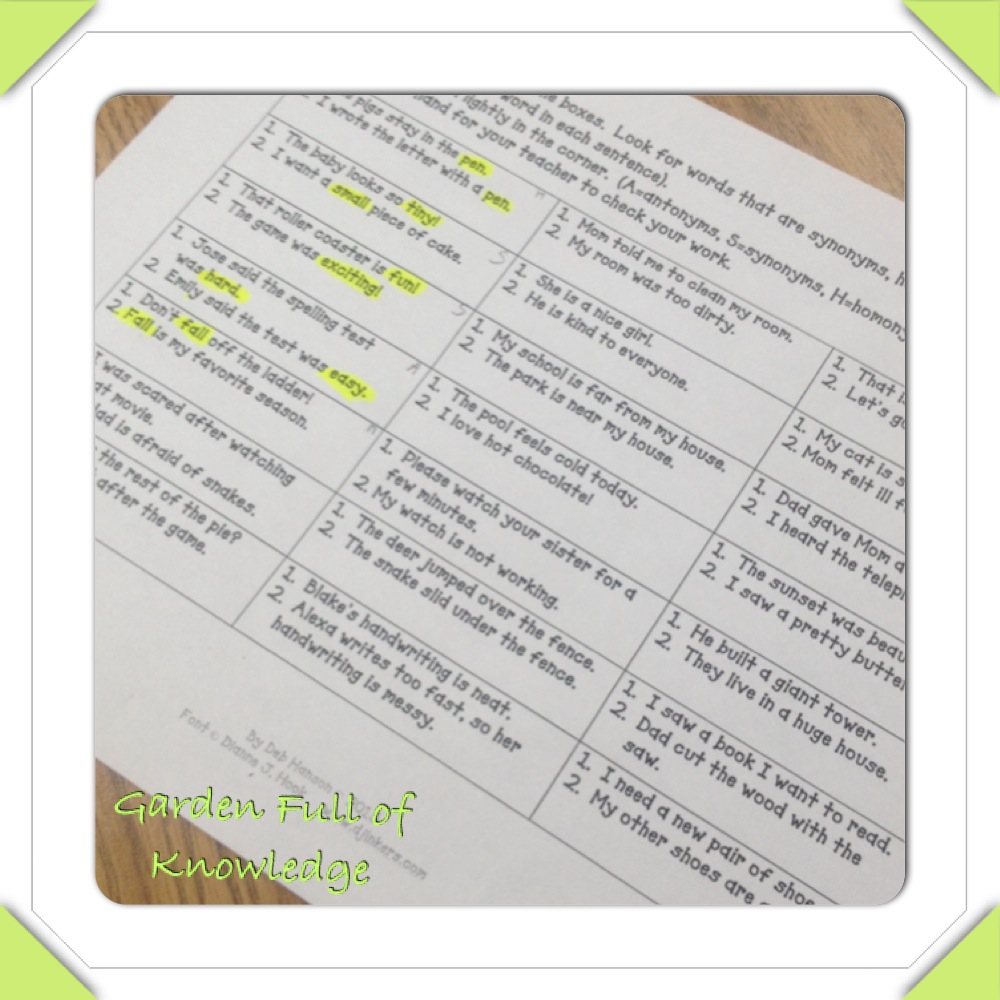 boxes. Look for words that are synonyms,
word in each sentence).
lightly in the corner. (A=antonyms, S=synonyms,
for your teacher to check your work.
pigs stay in the pen.
2. I wrote the letter with a pen.
H
1. The baby looks so tiny!
2. I want a small piece of cake.
S
1. That roller coaster is fun!
2. The game was exciting!
S
1. Jose said the spelling test
was hard.
2. Emily said the test was easy.
A
1. Don't fall off the ladder!
2. Fall is my favorite season.
H
I was scared after watching
movie.
is afraid of snakes.
the rest of the pie?
after the game.
1. Mom told me to clean my room.
2. My room was too dirty.
1. She is a nice girl.
2. He is kind to everyone.
1. My school is far from my house.
2. The park is near my house.
1. The pool feels cold today.
2. I love hot chocolate!
1. Please watch your sister for a
few minutes.
2. My watch is not working.
1. The deer jumped over the fence.
2. The snake slid under the fence.
1. Blake's handwriting is neat.
2. Alexa writes too fast, so her
handwriting is messy.
1. That
2. Let's
1. My cat is
2. Mom felt ill
1. Dad gave Mom
2. I heard the
1. The sunset was
2. I saw a pretty
1. He built a giant tower.
2. They live in a huge house.
1. I saw a book I want to read.
2. Dad cut the wood with the
saw.
1. I need a new pair of
2. My other shoes are
By Deb Hanson
Font © Dianne J. Hook
Garden Full of
Knowledge